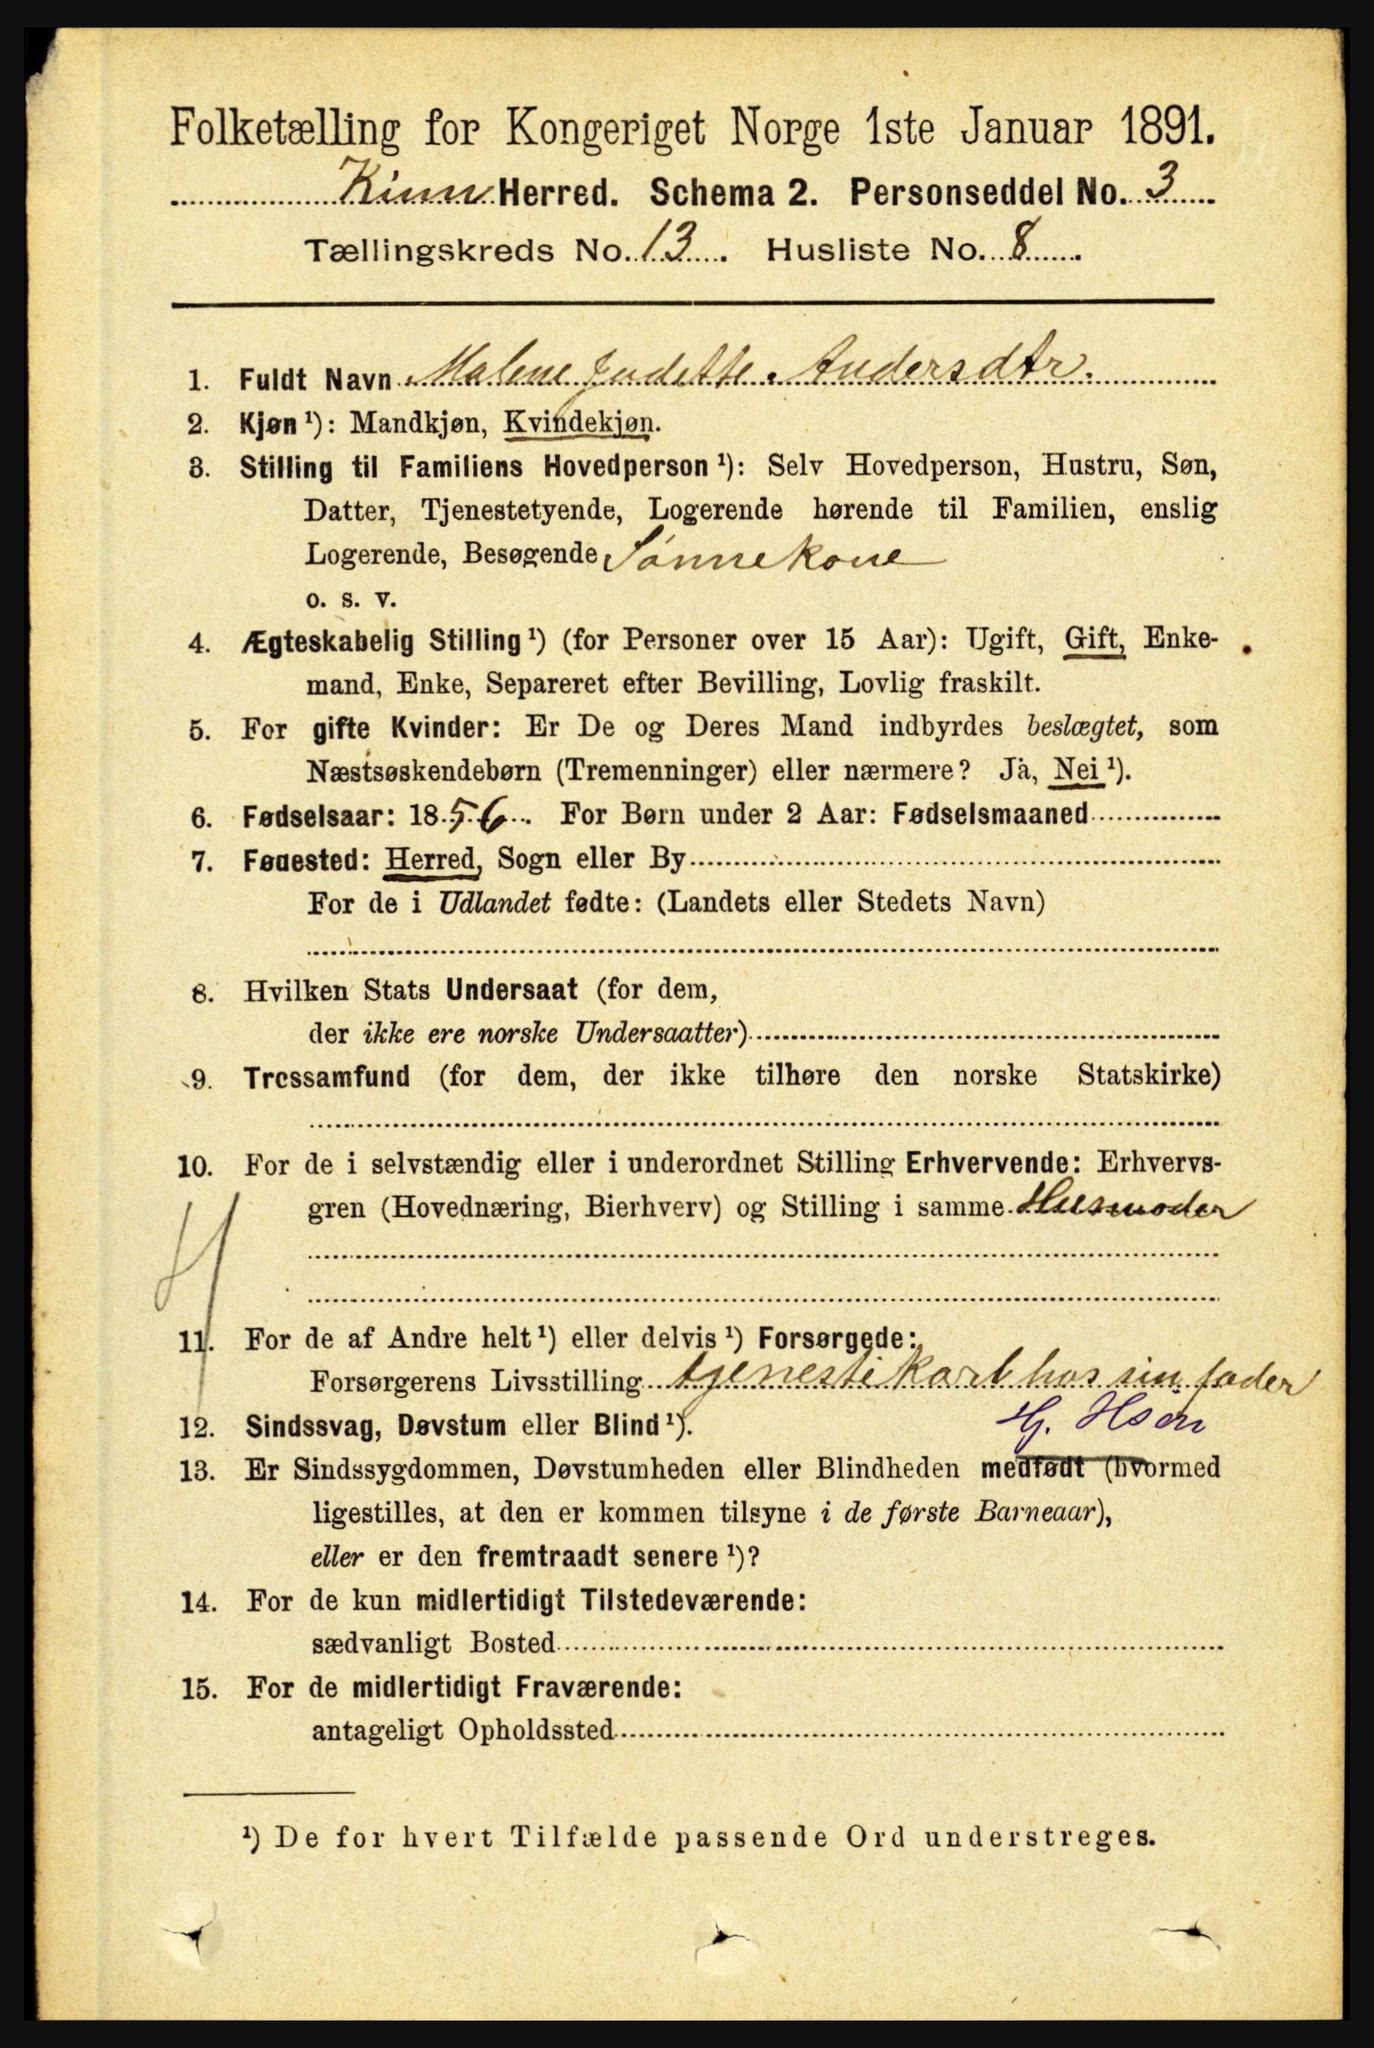 Folketælling for Kongeriget Norge 1ste Januar 1891.
Kinn Herred. Schema 2. Personseddel No. 3
Tællingskreds No. 13. Husliste No. 8
1. Fuldt Navn Malene Judette Andersdtr.
2. Kjøn ¹): Mandkjøn, Kvindekjøn.
3. Stilling til Familiens Hovedperson ¹): Selv Hovedperson, Hustru, Søn,
Datter, Tjenestetyende, Logerende hørende til Familien, enslig
Logerende, Besøgende Sønnekone
o. s. v.
4. Ægteskabelig Stilling ¹) (for Personer over 15 Aar): Ugift, Gift, Enke-
mand, Enke, Separeret efter Bevilling, Lovlig fraskilt.
5. For gifte Kvinder: Er De og Deres Mand indbyrdes beslægtet, som
Næstsøskendebørn (Tremenninger) eller nærmere? Ja, Nei ¹).
6. Fødselsaar: 1856. For Børn under 2 Aar: Fødselsmaaned
7. Fødested: Herred, Sogn eller By
For de i Udlandet fødte: (Landets eller Stedets Navn)
8. Hvilken Stats Undersaat (for dem,
der ikke ere norske Undersaatter)
9. Trossamfund (for dem, der ikke tilhøre den norske Statskirke)
10. For de i selvstændig eller i underordnet Stilling Erhvervende: Erhvervs-
gren (Hovednæring, Bierhverv) og Stilling i samme Husmoder
11. For de af Andre helt ¹) eller delvis ¹) Forsørgede:
Forsørgerens Livsstilling tjenestekarl hos sin fader
12. Sindssvag, Døvstum eller Blind ¹).
13. Er Sindssygdommen, Døvstumheden eller Blindheden medfødt (hvormed
ligestilles, at den er kommen tilsyne i de første Barneaar),
eller er den fremtraadt senere ¹)?
14. For de kun midlertidigt Tilstedeværende:
sædvanligt Bosted
15. For de midlertidigt Fraværende:
antageligt Opholdssted
¹) De for hvert Tilfælde passende Ord understreges.